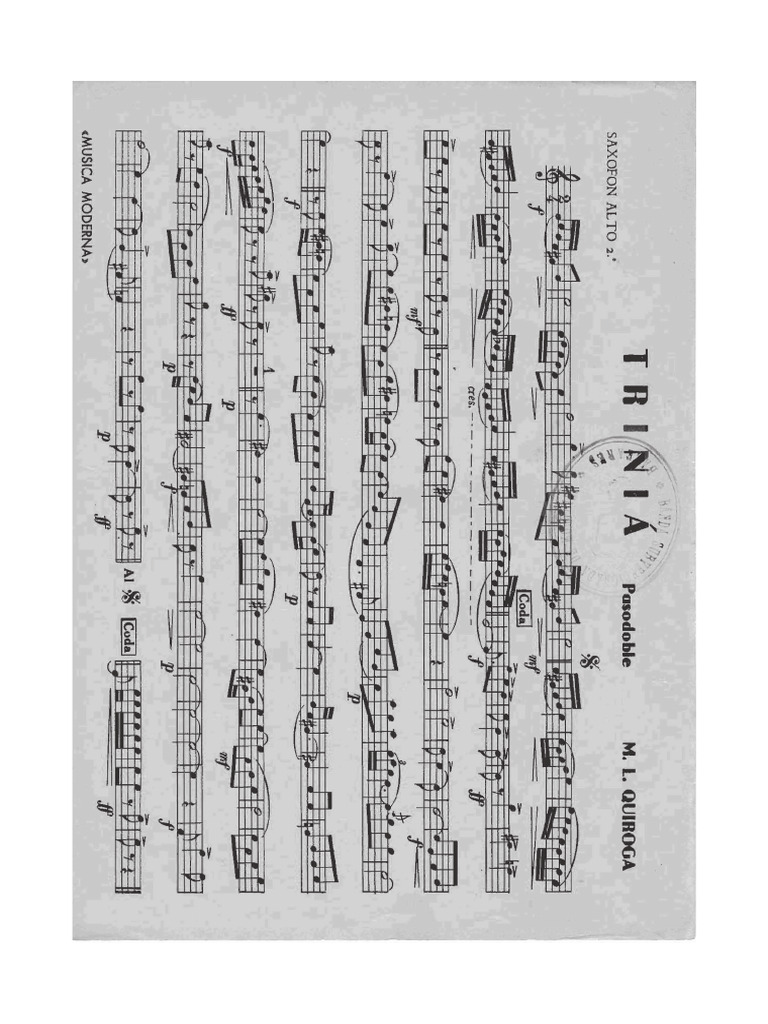 SAXOFON ALTO 2.º
TRINIÁ Pasodoble M. L. QUIROGA
f
mf
Coda
cres.
f
ff
mf
f
p
f
p
f
ff
1
p
mf
p
f
p
f
p
ff
Al
Coda
ff
«MUSICA MODERNA»